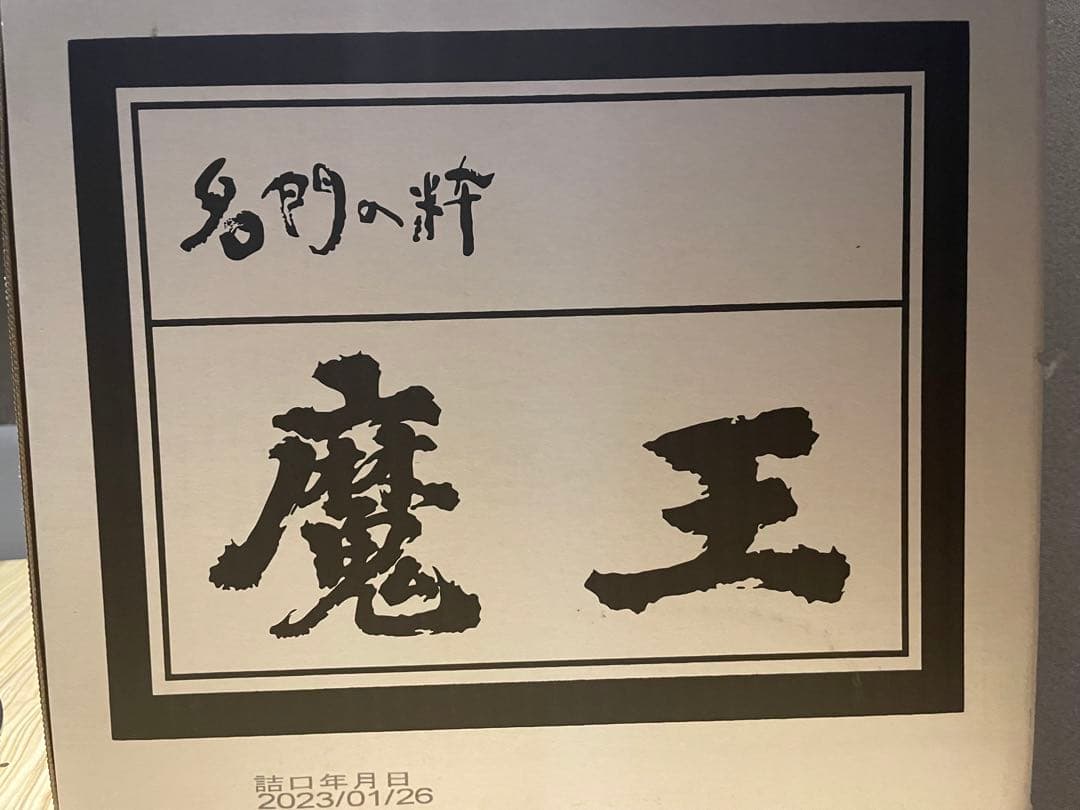 名門の粋
魔王
詰口年月日
2023/01/26